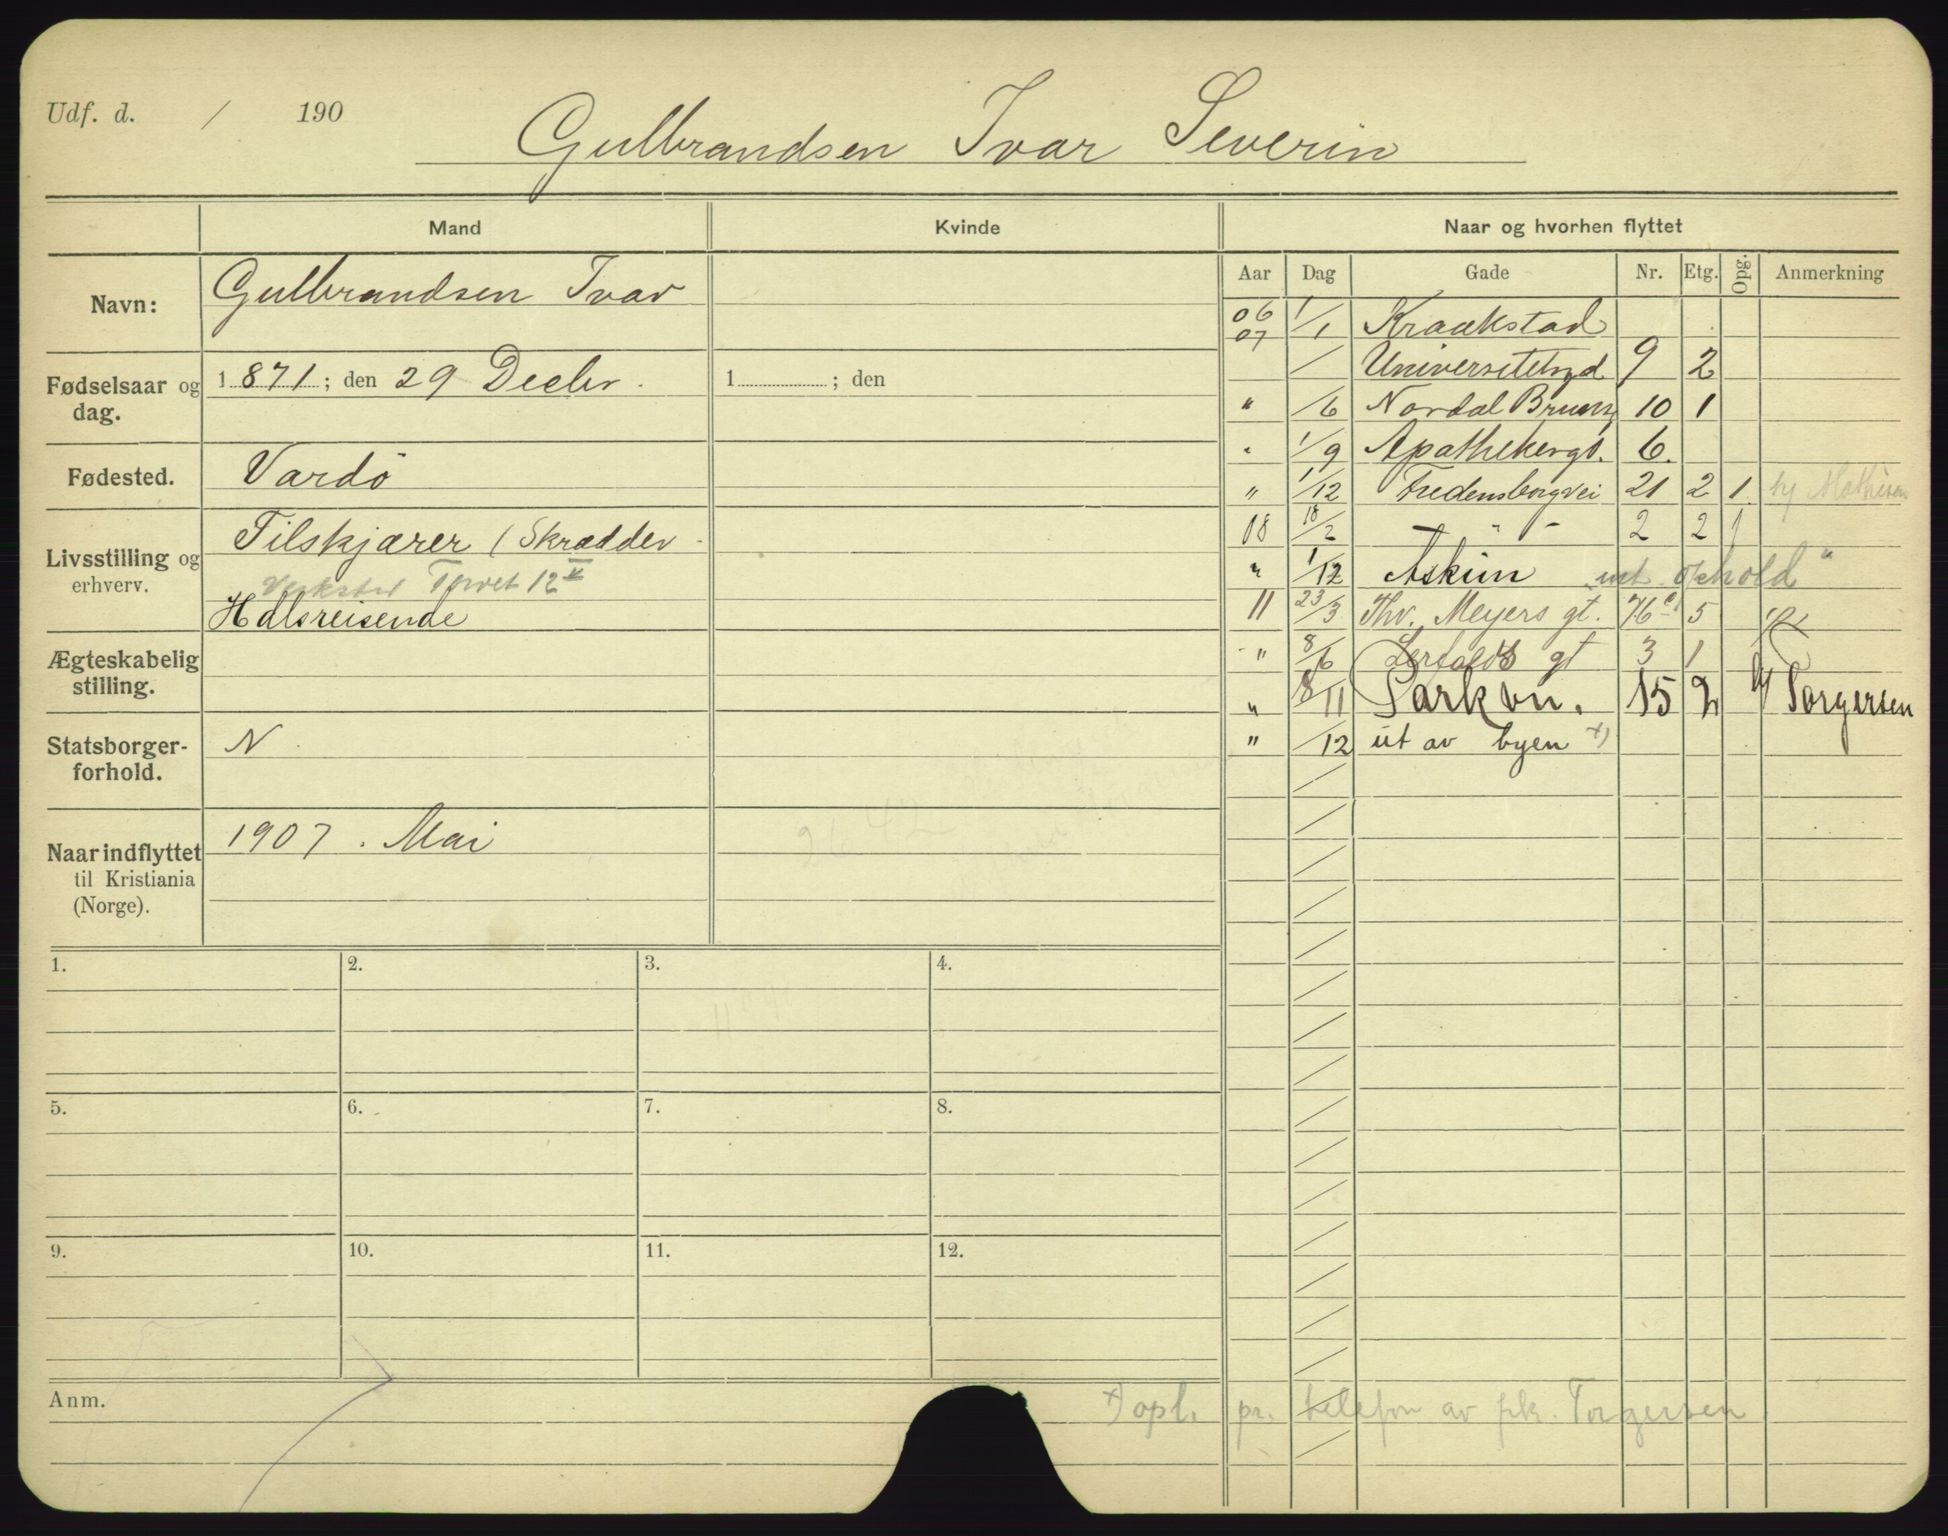 Udf. d. / 190
Gulbrandsen Ivar Severin
Mand Kvinde Naar og hvorhen flyttet
Aar Dag Gade Nr. Etg. Opg. Anmerkning
Navn: Gulbrandsen Ivar
Fødselsaar og dag. 1871; den 29 Decbr. 1 ; den
Fødested. Vardö
Livsstilling og erhverv. Tilskjærer / Skrædder
Verksted Torvet 12
Hdlsreisende
Ægteskabelig stilling.
Statsborger-forhold. N
Naar indflyttet til Kristiania (Norge). 1907. Mai
06 07 1/1 Kraakstad
/ Universitetsgd 9 2
" /6 Nordal Brunsg 10 1
" 1/9 Apothekergt. 6.
" 1/12 Fredensborgvei 21 2 1. hj Mathisen
08 18/2 " - 2 2 1
" 1/12 Askim
11 23/3 Thv. Meyers gt. 76 5
" 8/6 gt 3 1
" 8/11 Parkvn. 15 2 h/ Torgersen
" /12 ut av byen x)
1. 2. 3. 4.
5. 6. 7. 8.
9. 10. 11. 12.
Anm.
x) opl. pr. telefon av frk. Torgersen